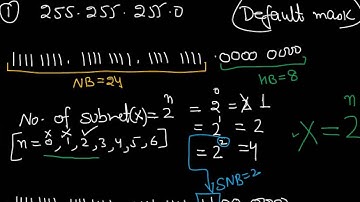 ① 255.255.255.0 (Default mask)
1111 1111. 1111 1111. 1111 1111. 0000 0000
NB=24 HB=8
No. of subnet(x) = 2^n = 2^0 = 1
= 2^1 = 2
[n = 0, 1, 2, 3, 4, 5, 6] = 2^2 = 4
x = 2^n
SNB=2